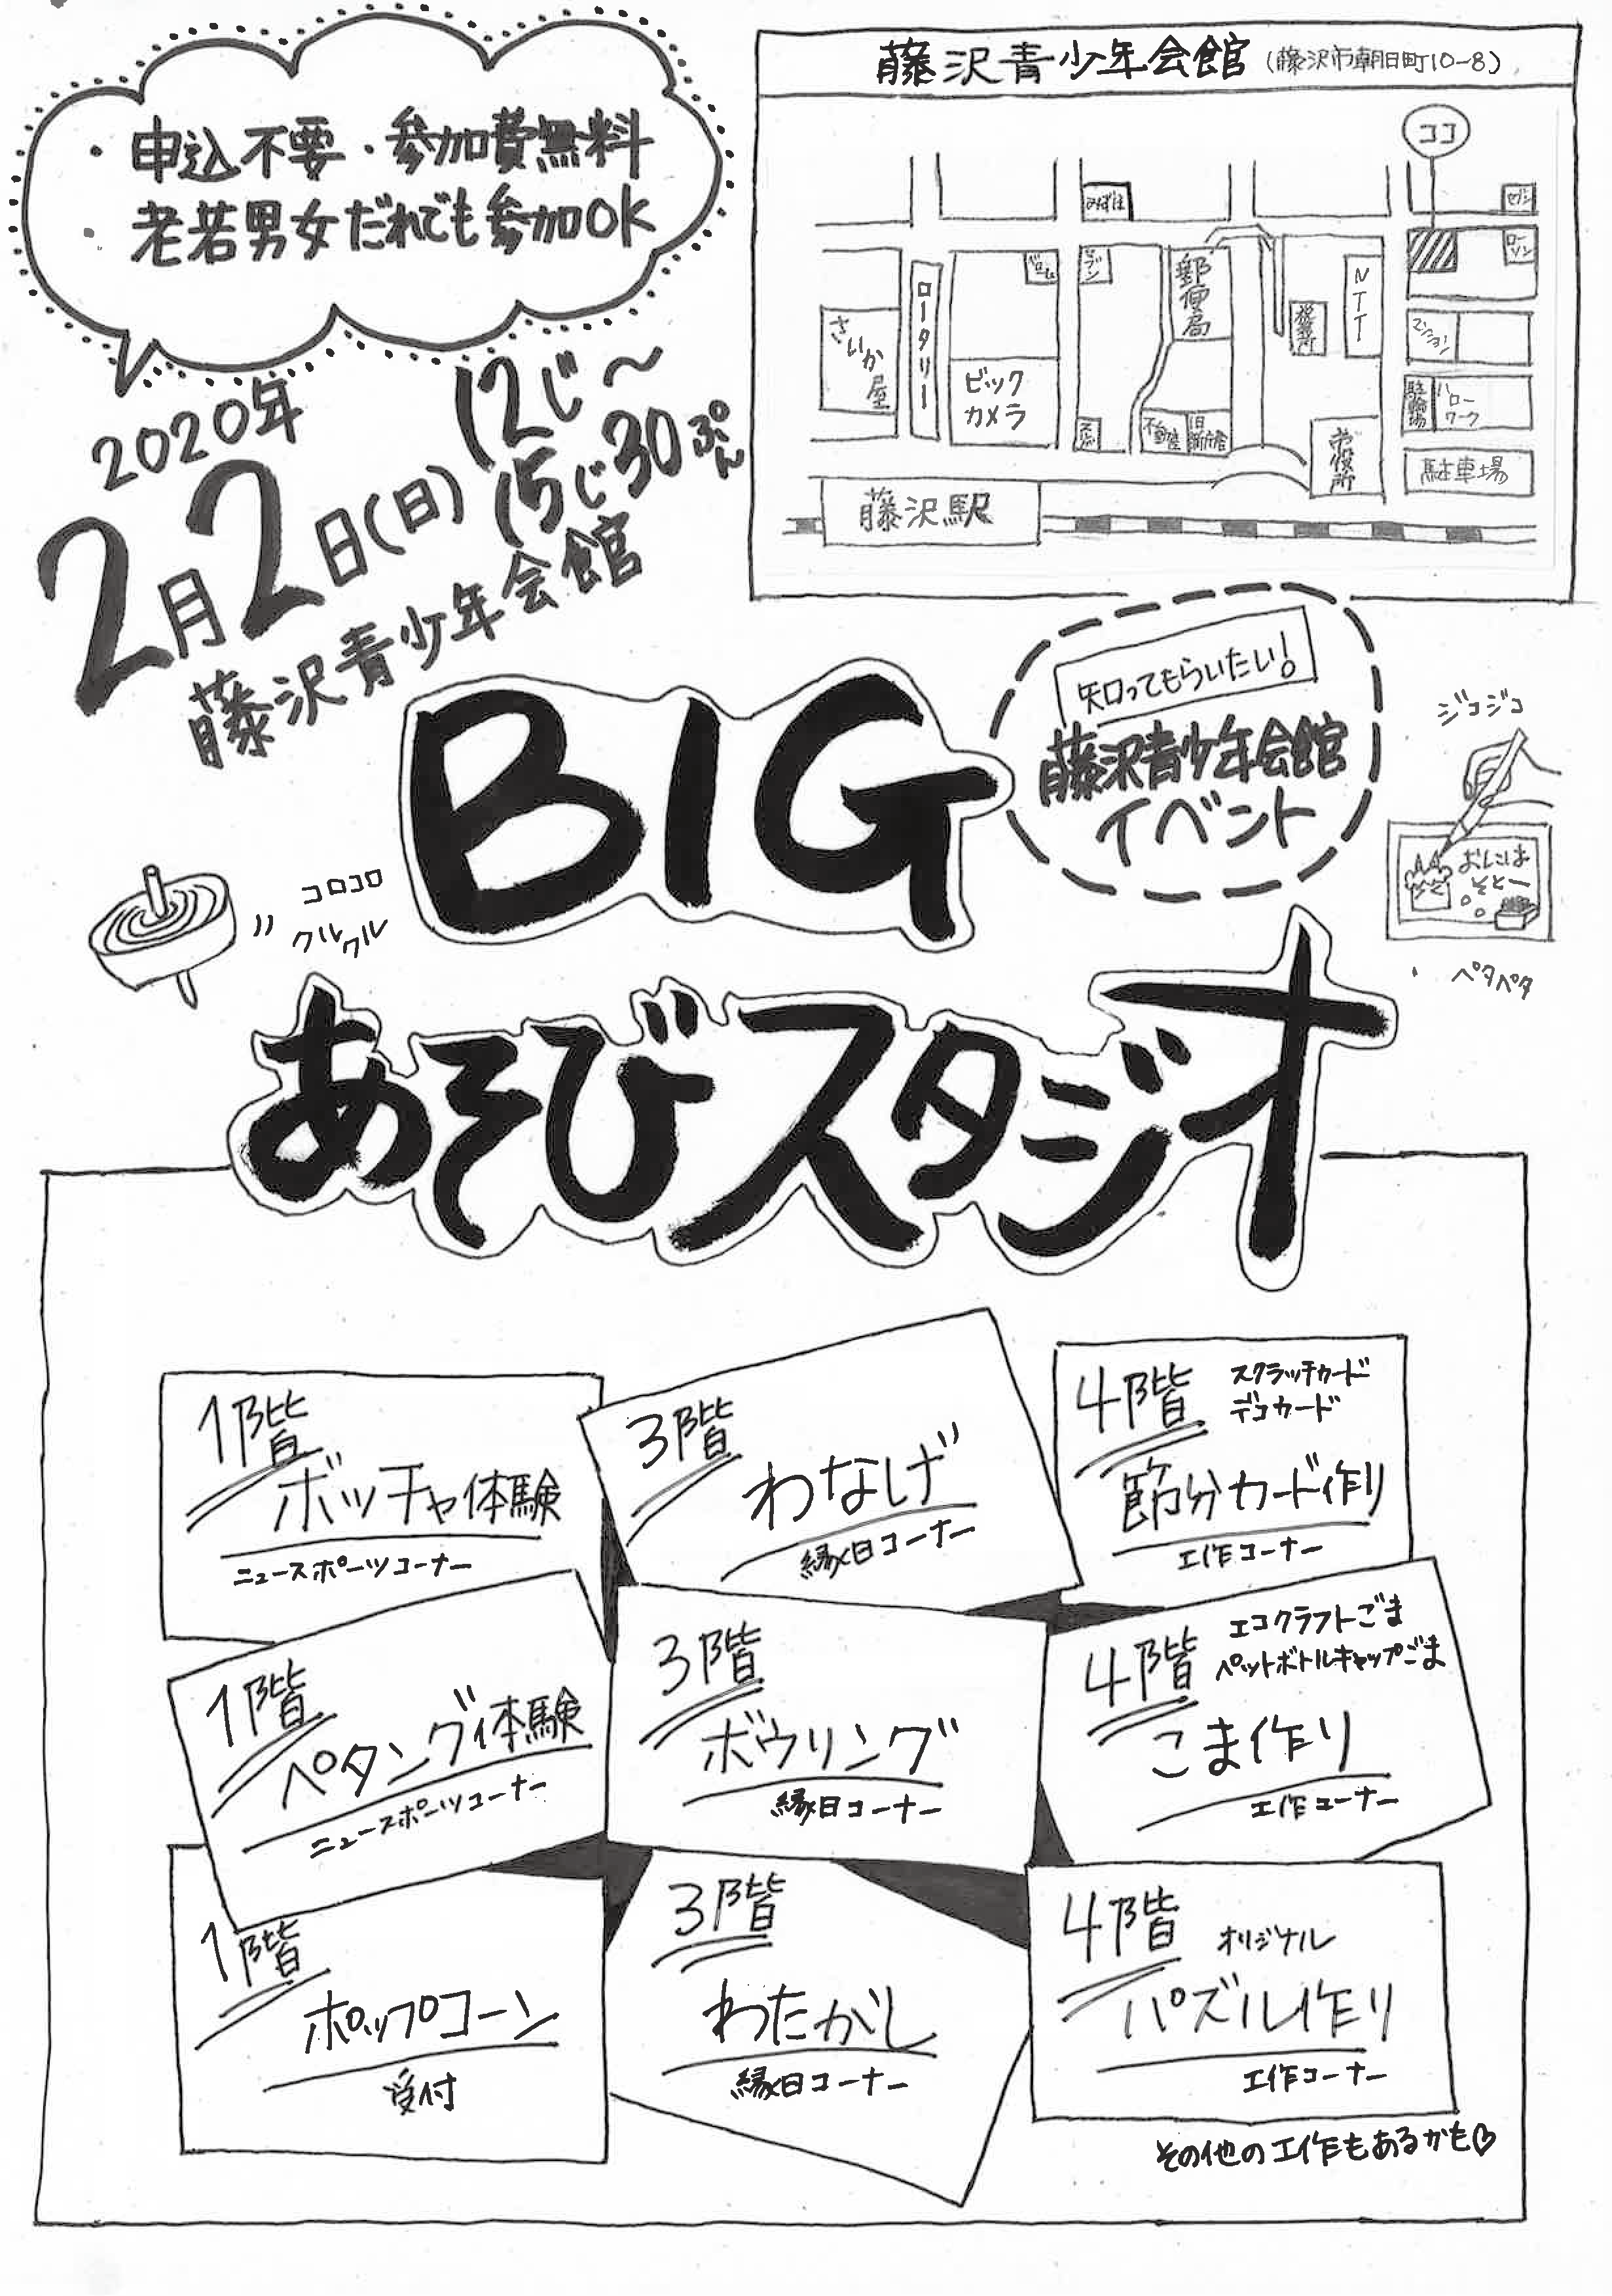 ・申込不要・参加費無料
・老若男女だれでも参加OK
2020年
2月2日(日)
12じ〜
15じ30ぷん
藤沢青少年会館
藤沢青少年会館(藤沢市朝日町10-8)
ココ
みずほ
セブン
ローソン
セブン
郵便局
税務所
NTT
ロータリー
さいか屋
ビック
カメラ
マンション
駐輪場
ハローワーク
不動産
市役所
駐車場
藤沢駅
知ってもらいたい!
藤沢青少年会館
イベント
ジコジコ
おにはそとー
ペタペタ
コロコロ
クルクル
BIG
あそびスタジオ
1階
ボッチャ体験
ニュースポーツコーナー
3階
わなげ
縁日コーナー
4階
スクラッチカード
デコカード
節分カード作り
工作コーナー
1階
ペタング体験
ニュースポーツコーナー
3階
ボウリング
縁日コーナー
4階
エコクラフトごま
ペットボトルキャップごま
こま作り
工作コーナー
1階
ポップコーン
受付
3階
わたがし
縁日コーナー
4階
オリジナル
パズル作り
工作コーナー
その他の工作もあるかも♡